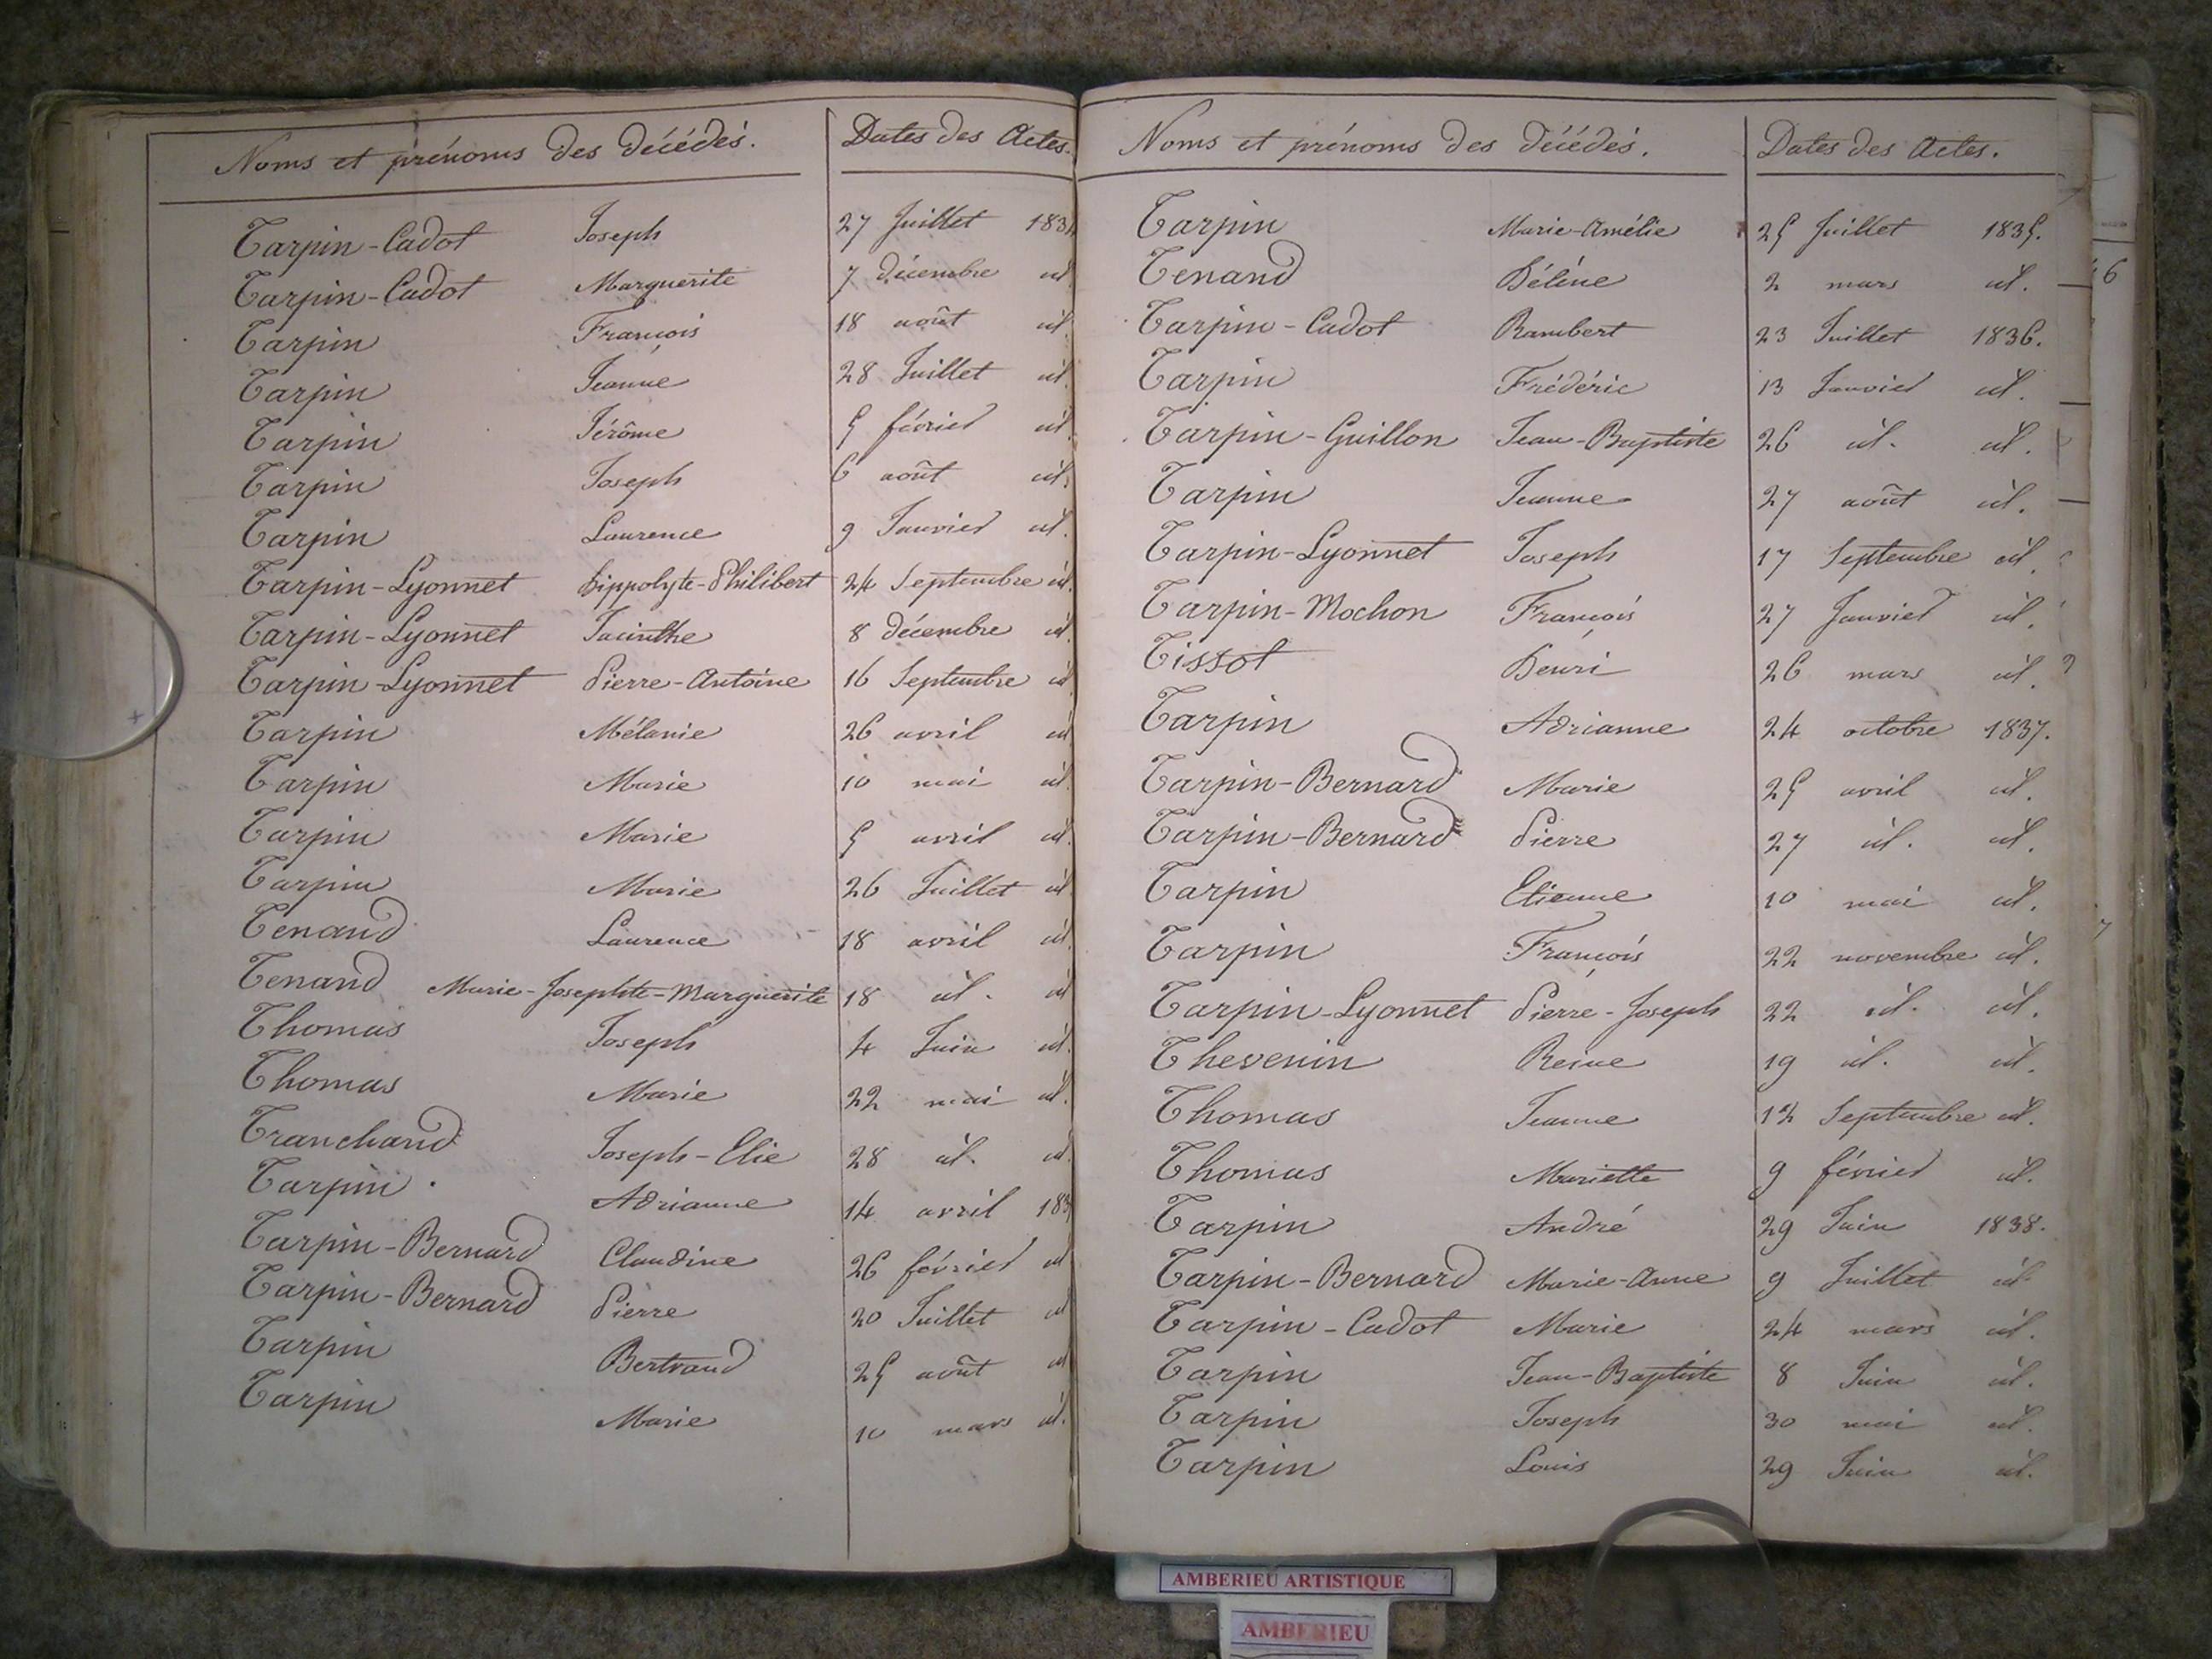 Noms et prénoms des décédés. Dates des Actes.
Tarpin-Cadot Joseph 27 Juillet 183
Tarpin-Cadot Marguerite 7 décembre id
Tarpin François 18 août id
Tarpin Jeanne 28 Juillet id.
Tarpin Jérôme 5 février id.
Tarpin Joseph 6 août id.
Tarpin Laurence 9 Janvier id.
Tarpin-Lyonnet hippolyte-Philibert 24 Septembre id.
Tarpin-Lyonnet Jacinthe 8 décembre id.
Tarpin-Lyonnet Pierre-Antoine 16 Septembre id
Tarpin Mélanie 26 avril id
Tarpin Marie 10 mai id
Tarpin Marie 5 avril id.
Tarpin Marie 26 Juillet id
Tenand Laurence 18 avril id.
Tenand Marie-Josephte-Marguerite 18 id. id
Thomas Joseph 4 Juin id.
Thomas Marie 22 mai id.
Tranchand Joseph-Elie 28 id. id.
Tarpin. Adrianne 14 avril 183
Tarpin-Bernard Claudine 26 février id
Tarpin-Bernard Pierre 20 Juillet id
Tarpin Bertrand 25 août id
Tarpin Marie 10 mars id.
Noms et prénoms des décédés. Dates des Actes.
Tarpin Marie-Amélie 25 Juillet 1835.
Tenand hélène 2 mars id.
Tarpin-Cadot Rambert 23 Juillet 1836.
Tarpin Frédéric 13 Janvier id.
Tarpin-Guillon Jean-Baptiste 26 id. id.
Tarpin Jeanne 27 août id.
Tarpin-Lyonnet Joseph 17 Septembre id.
Tarpin-Mochon François 27 Janvier id.
Tissot henri 26 mars id.
Tarpin Adrianne 24 octobre 1837.
Tarpin-Bernard Marie 25 avril id.
Tarpin-Bernard Pierre 27 id. id.
Tarpin Etienne 10 mai id.
Tarpin François 22 novembre id.
Tarpin-Lyonnet Pierre-Joseph 22 id. id.
Thevenin Reine 19 id. id.
Thomas Jeanne Septembre id.
Thomas Mariette 9 février id.
Tarpin André 29 Juin 1838.
Tarpin-Bernard Marie-Anne 9 Juillet id.
Tarpin-Cadot Marie 24 mars id.
Tarpin Jean-Baptiste 8 Juin id.
Tarpin Joseph 30 mai id.
Tarpin Louis 29 Juin id.
6
AMBERIEU ARTISTIQUE
AMBERIEU